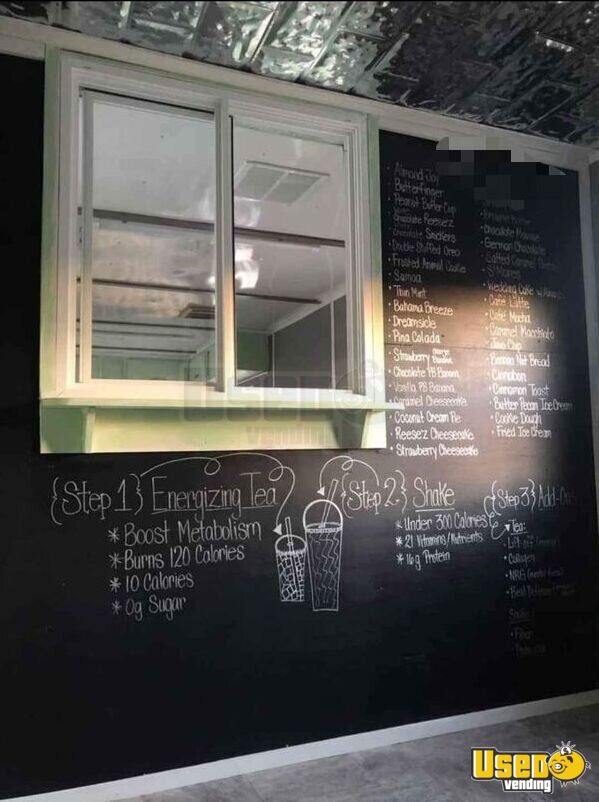 Almond Joy
Butterfinger
Peanut Butter Cup
Chocolate Reesez
Chocolate Snickers
Double Stuffed Oreo
Frosted Animal Cookie
Samoa
Thin Mint
Bahama Breeze
Dreamsicle
Pina Colada
Strawberry
Chocolate PB Banana
Vanilla PB Banana
Caramel Cheesecake
Coconut Cream Pie
Reese'z Cheesecake
Strawberry Cheesecake
Brownie Batter
Chocolate
German Chocolate
Salted Caramel
S'Mores
Wedding Cake
Café Latte
Café Mocha
Caramel Macchiato
Java Chip
Banana Nut Bread
Cinnabon
Cinnamon Toast
Butter Pecan Ice Cream
Cookie Dough
Fried Ice Cream
{Step 1} Energizing Tea
* Boost Metabolism
* Burns 120 Calories
* 10 Calories
* 0g Sugar
{Step 2.} Shake
* Under 300 Calories
* 21 Vitamins/Nutrients
* 16g Protein
{Step 3} Add-Ons
Tea:
• Lift-off
• Collagen
• NRG
• Best Defense
Shake:
• Fiber
USED vending
USED vending